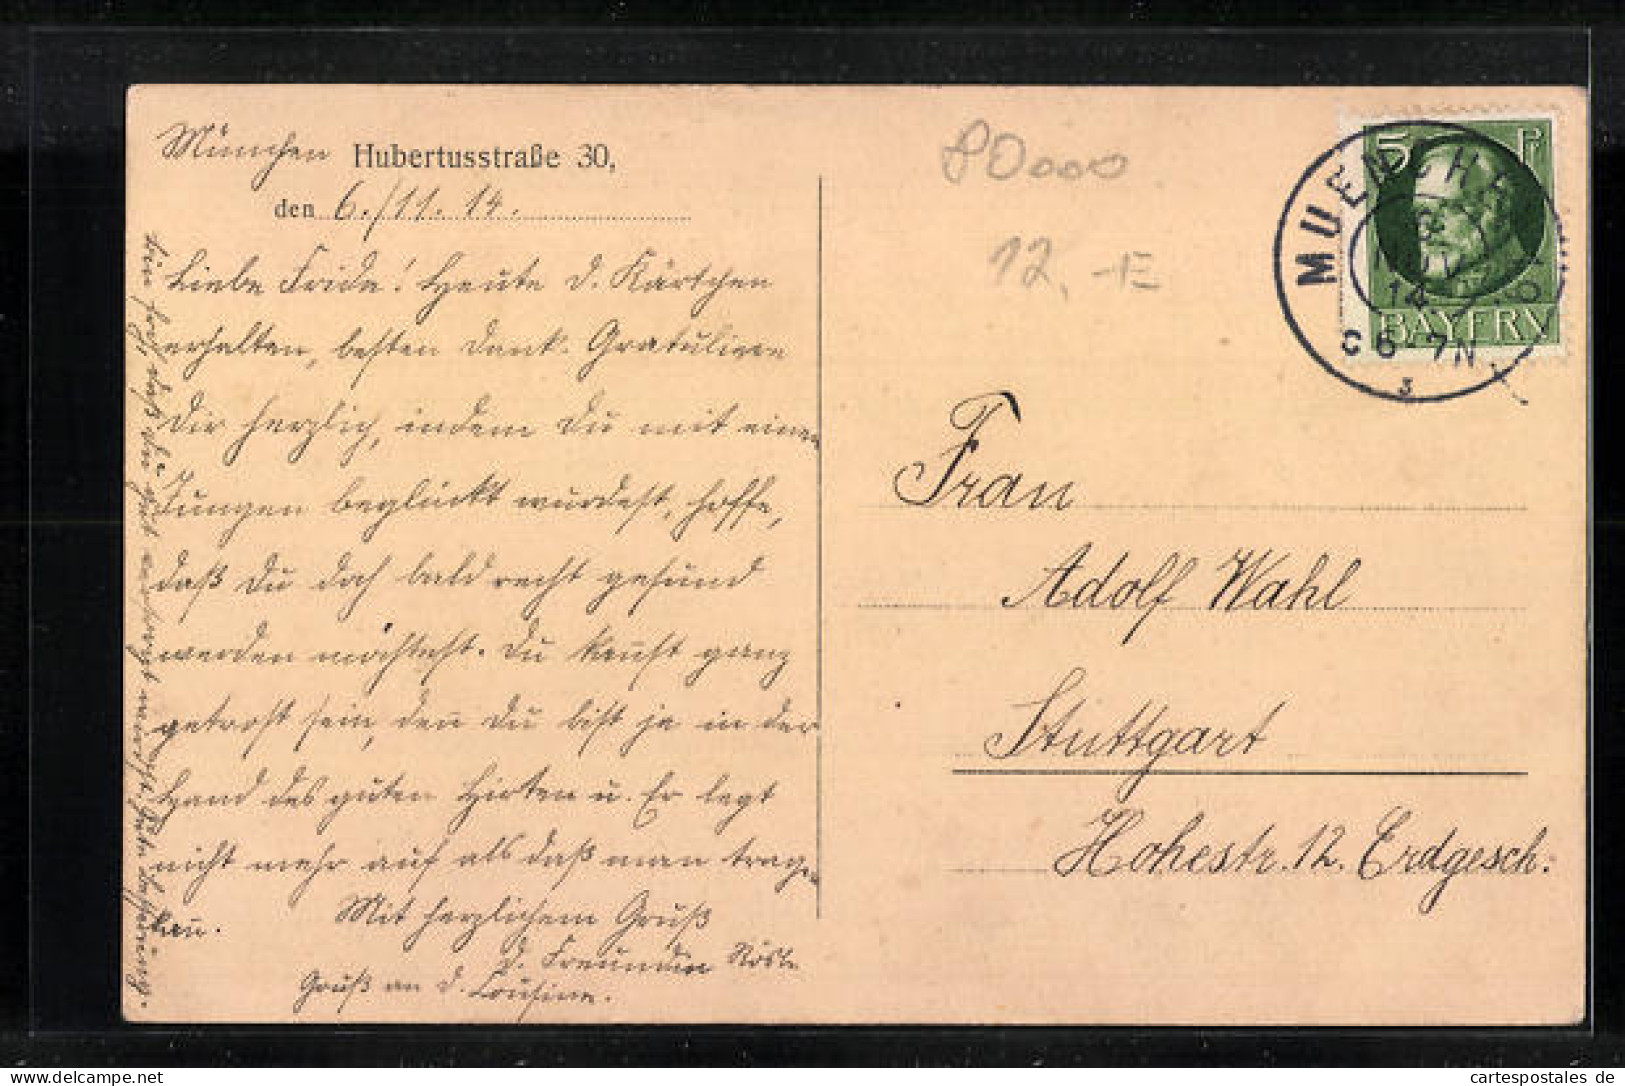 München Hubertusstraße 30,
den 6./11. 14.
Liebe Frida! Heute d. Kärtchen
erhalten, besten Dank. Gratuliere
Dir herzlich, indem Du mit einem
Jungen beglückt wurdest, hoffe,
daß Du doch bald recht gesund
werden möchtest. Du kannst ganz
getrost sein, denn Du bist ja in der
Hand des guten Hirten u. Er legt
nicht mehr auf als daß man tragen
kann.
Mit herzlichem Gruß
d. Freundin Rösle
Gruß an d. Cousine.
daß Du gut versorgt
80000
12,-E
5 Pf
BAYERN
MUENCHEN
NOV
14
C 6-7N
3
Frau
Adolf Wahl
Stuttgart
Hohestr. 12. Erdgesch.
Visit cartespostales
cartespostales de